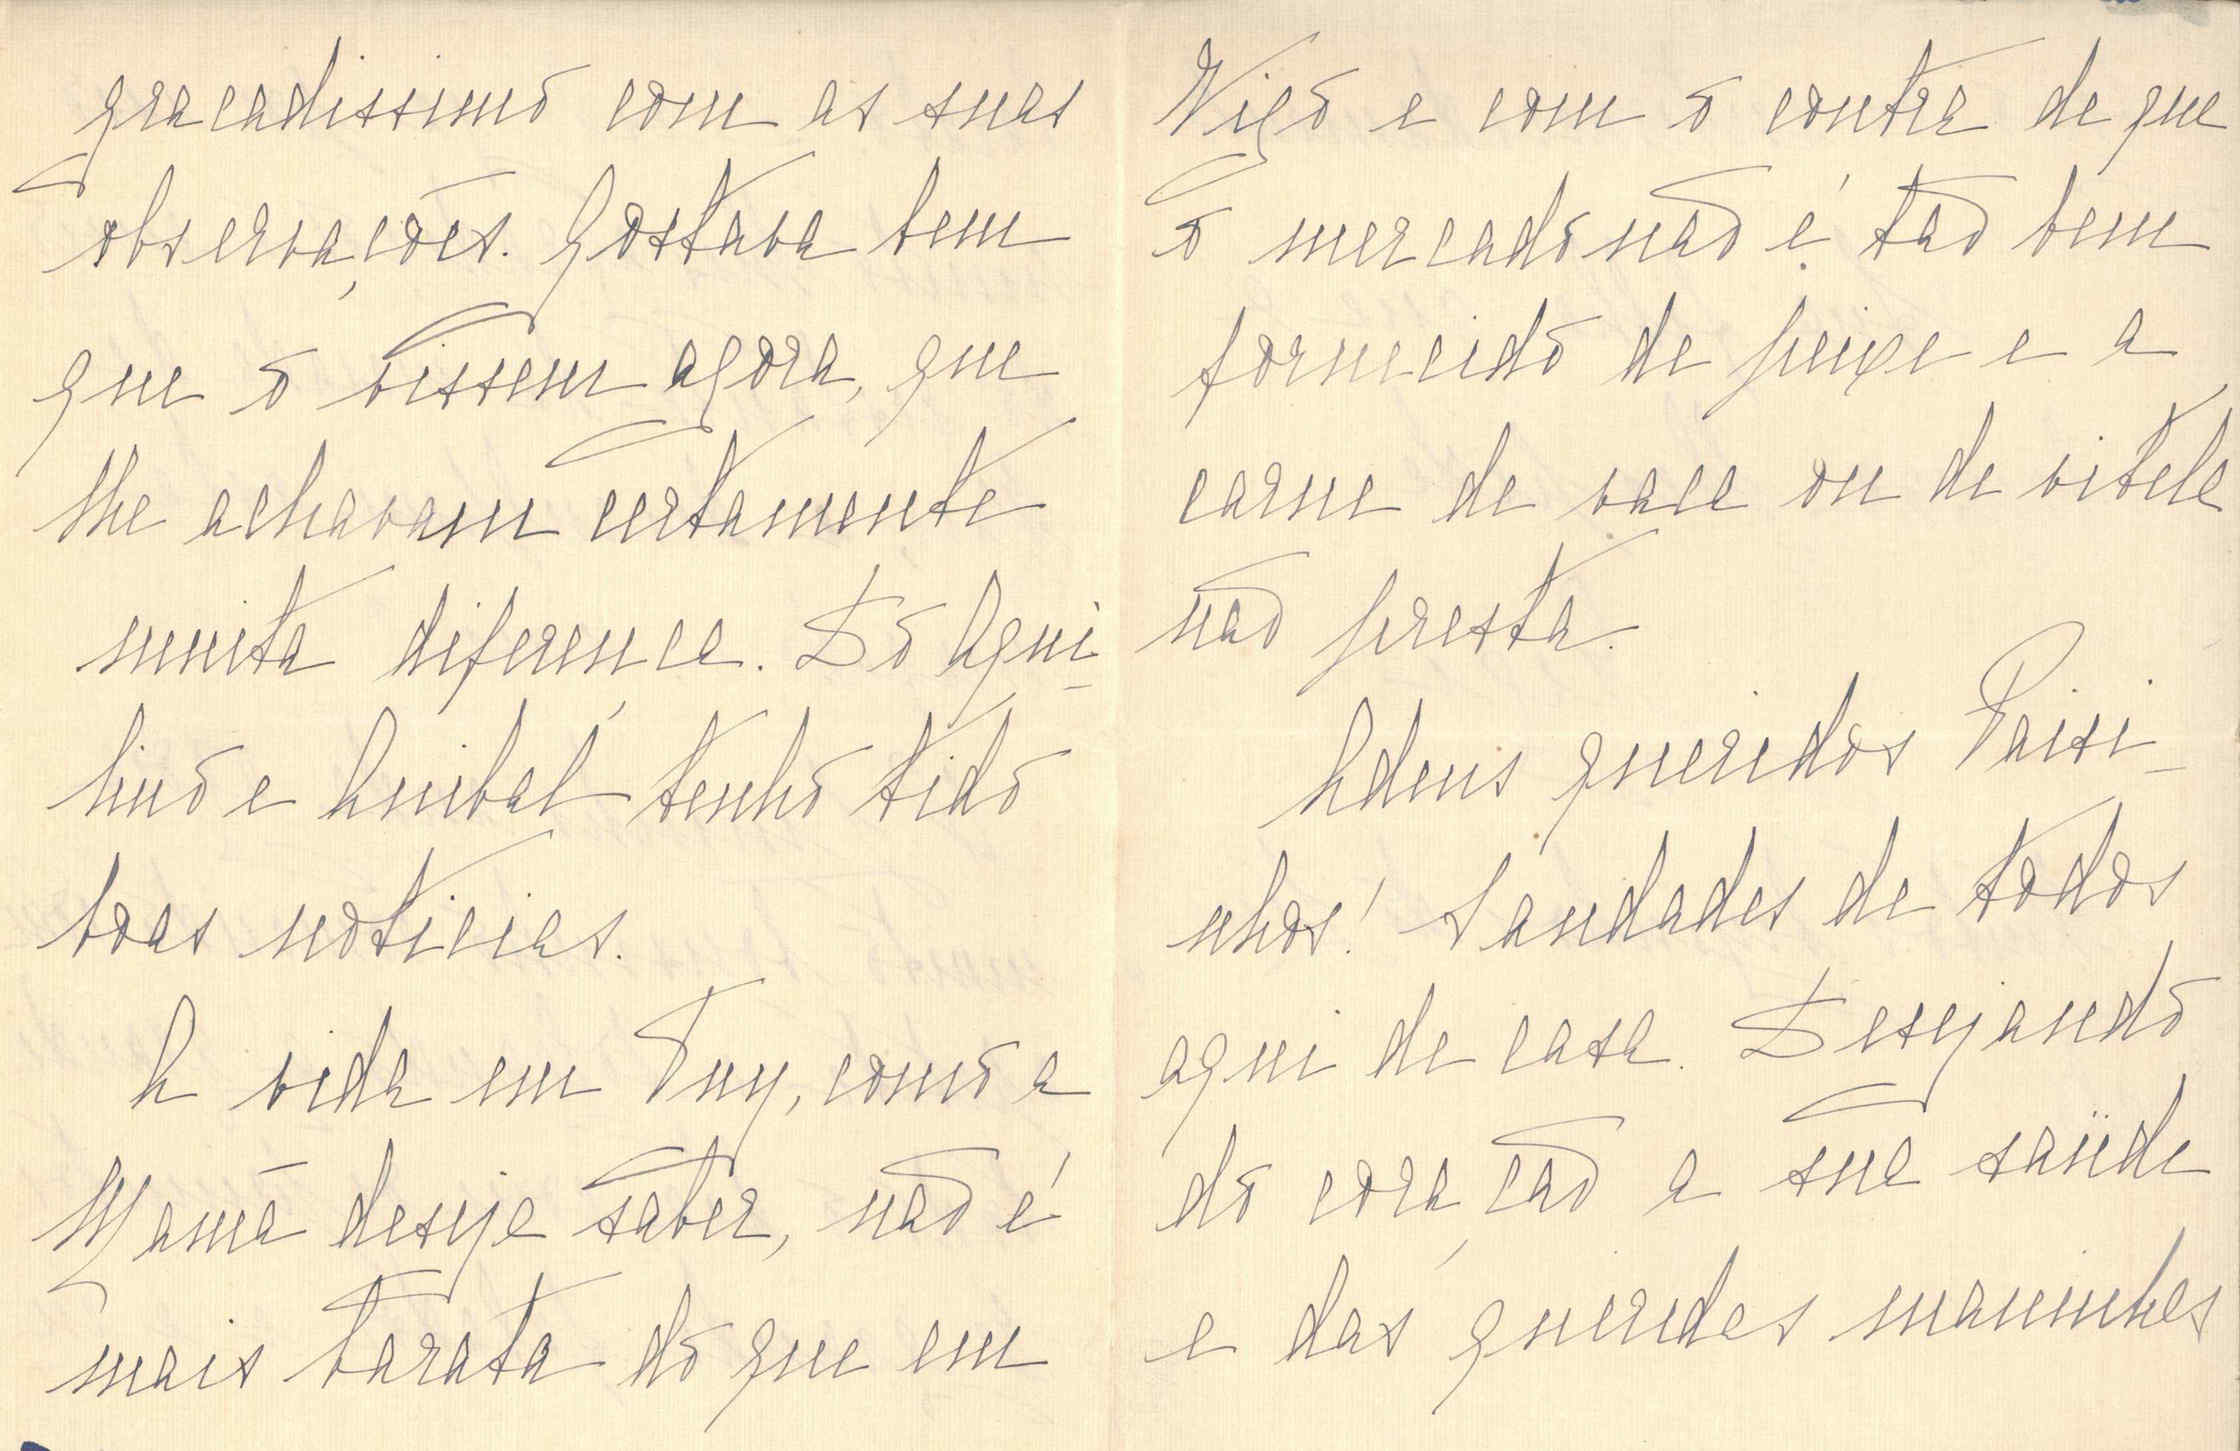 gracadissimo com as suas
observações. Gostava bem
que o vissem agora, que
lhe achavam certamente
muita diferença. Do Aqui-
lino e Anibal tenho tido
boas noticias.
A vida em Tuy, como a
Mamã deseja saber, não é
mais barata do que em
Vigo e com o contra de que
o mercado não é tão bem
fornecido de peixe e a
carne de vaca ou de vitela
não presta.
Adeus queridos Paisi-
nhos! Saudades de todos
aqui de casa. Desejando
do coração a sua saüde
e das queridas maninhas